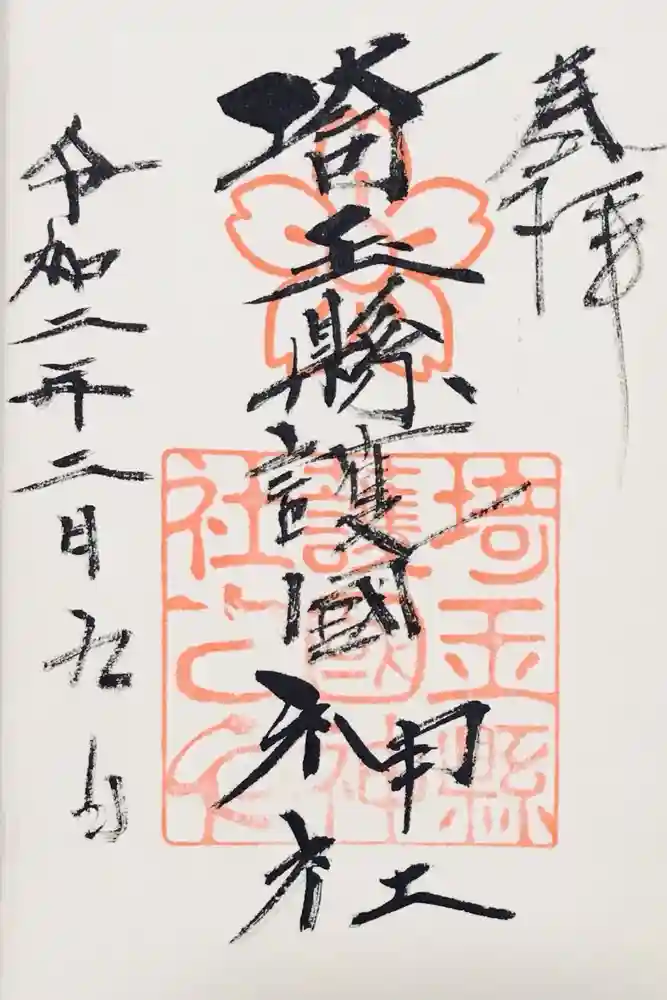 奉拝
埼玉縣護國神社
令和二年二月九日
埼玉縣
護國神
社之印